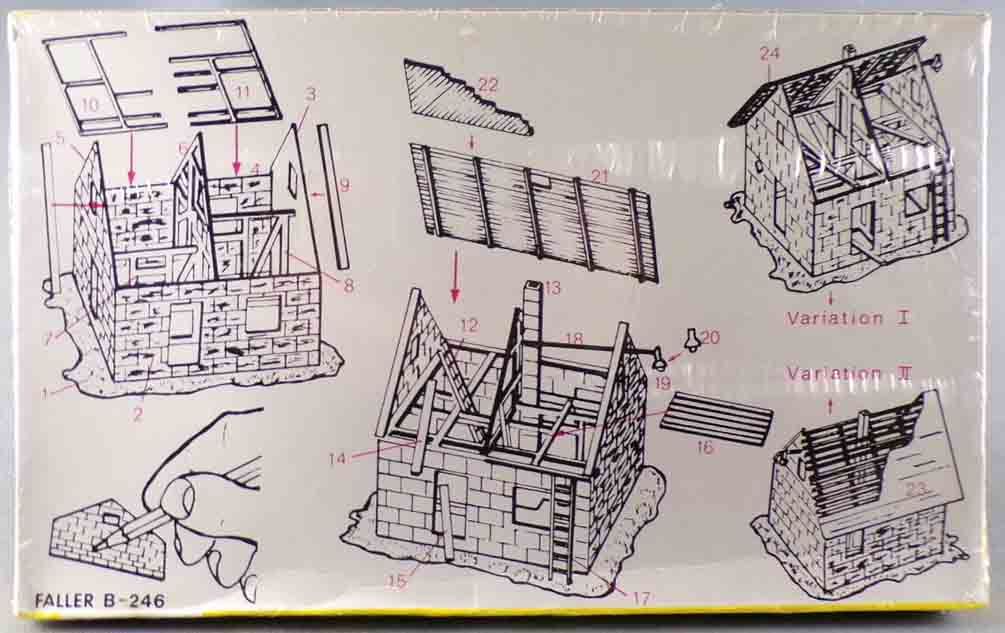 10
11
3
5
6
4
9
8
7
1
2
22
21
13
12
18
20
19
14
16
15
17
24
Variation I
Variation II
23
FALLER B-246